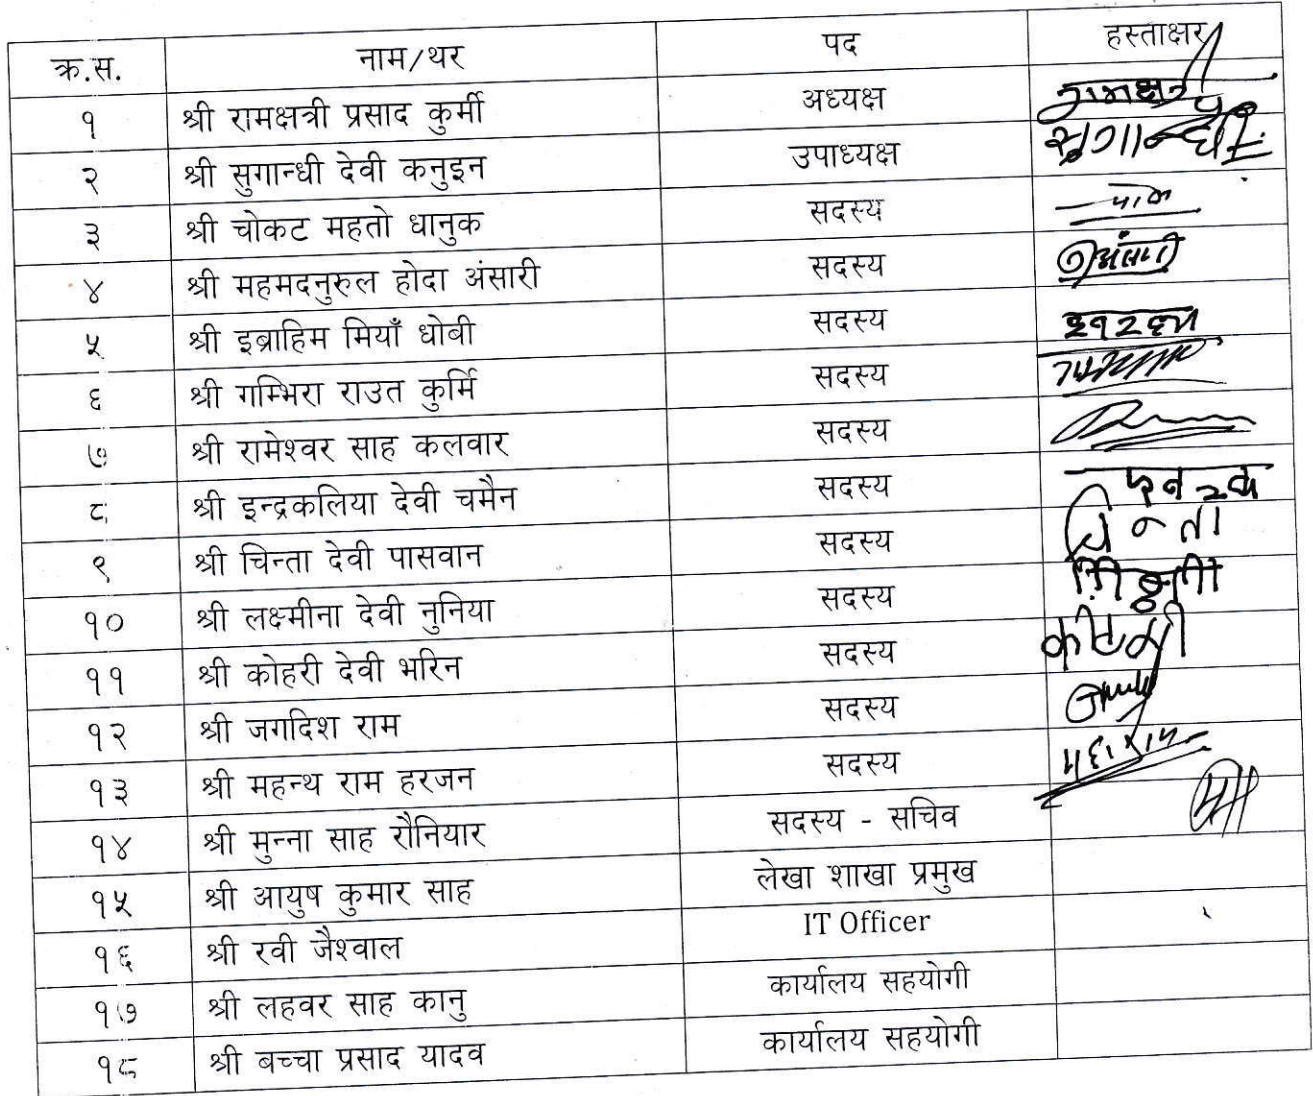 क्र.स. नाम/थर पद हस्ताक्षर
१ श्री रामक्षत्री प्रसाद कुर्मी अध्यक्ष
२ श्री सुगान्धी देवी कनुइन उपाध्यक्ष सुगान्धी
३ श्री चोकट महतो धानुक सदस्य
४ श्री महमदनुरुल होदा अंसारी सदस्य
५ श्री इब्राहिम मियाँ धोबी सदस्य
६ श्री गम्भिरा राउत कुर्मि सदस्य
७ श्री रामेश्वर साह कलवार सदस्य
८ श्री इन्द्रकलिया देवी चमैन सदस्य
९ श्री चिन्ता देवी पासवान सदस्य
१० श्री लक्ष्मीना देवी नुनिया सदस्य
११ श्री कोहरी देवी भरिन सदस्य
१२ श्री जगदिश राम सदस्य
१३ श्री महन्थ राम हरजन सदस्य
१४ श्री मुन्ना साह रौनियार सदस्य - सचिव
१५ श्री आयुष कुमार साह लेखा शाखा प्रमुख
१६ श्री रवी जैश्वाल IT Officer
१७ श्री लहवर साह कानु कार्यालय सहयोगी
१८ श्री बच्चा प्रसाद यादव कार्यालय सहयोगी